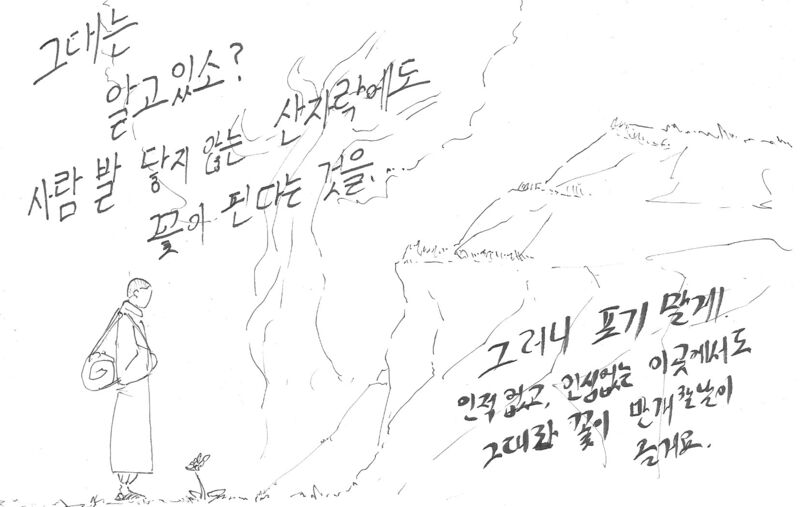 그대는
알고있소?
사람 발 닿지 않는 산자락에도
꽃이 핀다는 것을.
그러니 포기 말게.
인적 없고, 인심없는 이곳에서도
그대라 꽃이 만개할날이
올거요.